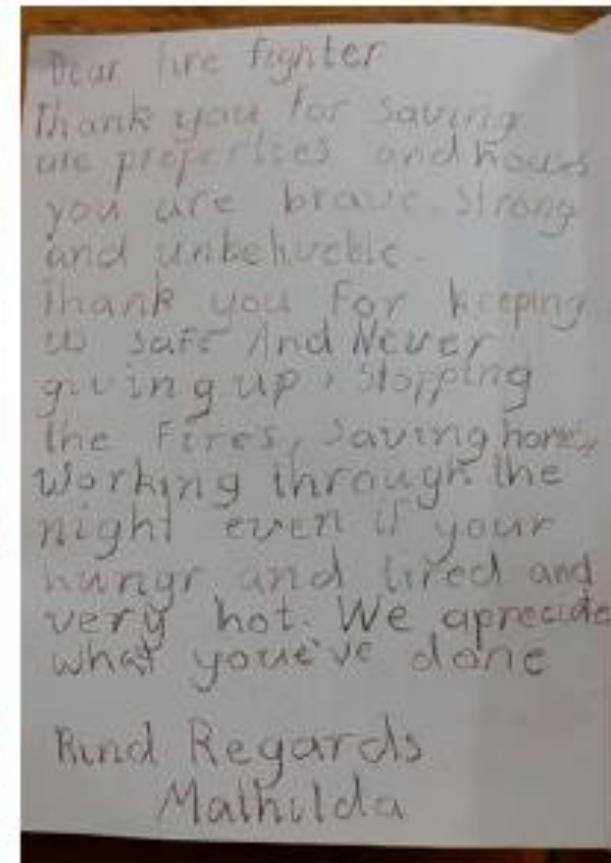 Dear Fire fighter
Thank you for saving
are properties and houses
you are brave, strong
and unbelieveble.
Thank you For keeping
us safe And Never
giving up, stopping
the Fires, saving homes,
working through the
night even if your
hungr and tired and
very hot. We apreciate
what youe've done
Kind Regards
Mathilda